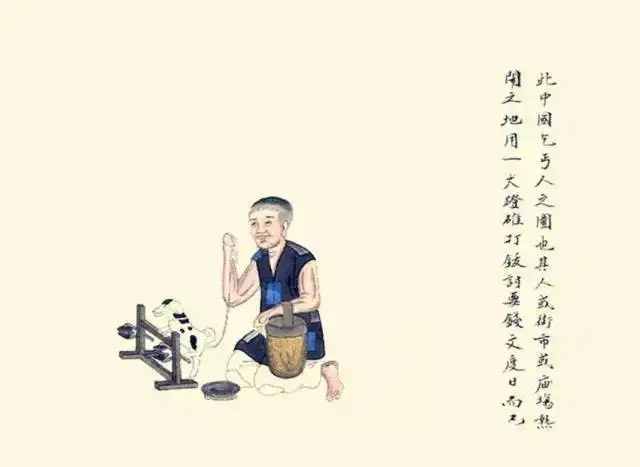 此中國乞丐人之圖也其人或街市或庙塲熱
閙之地用一犬蹬碓打鈸討要錢文度日而已